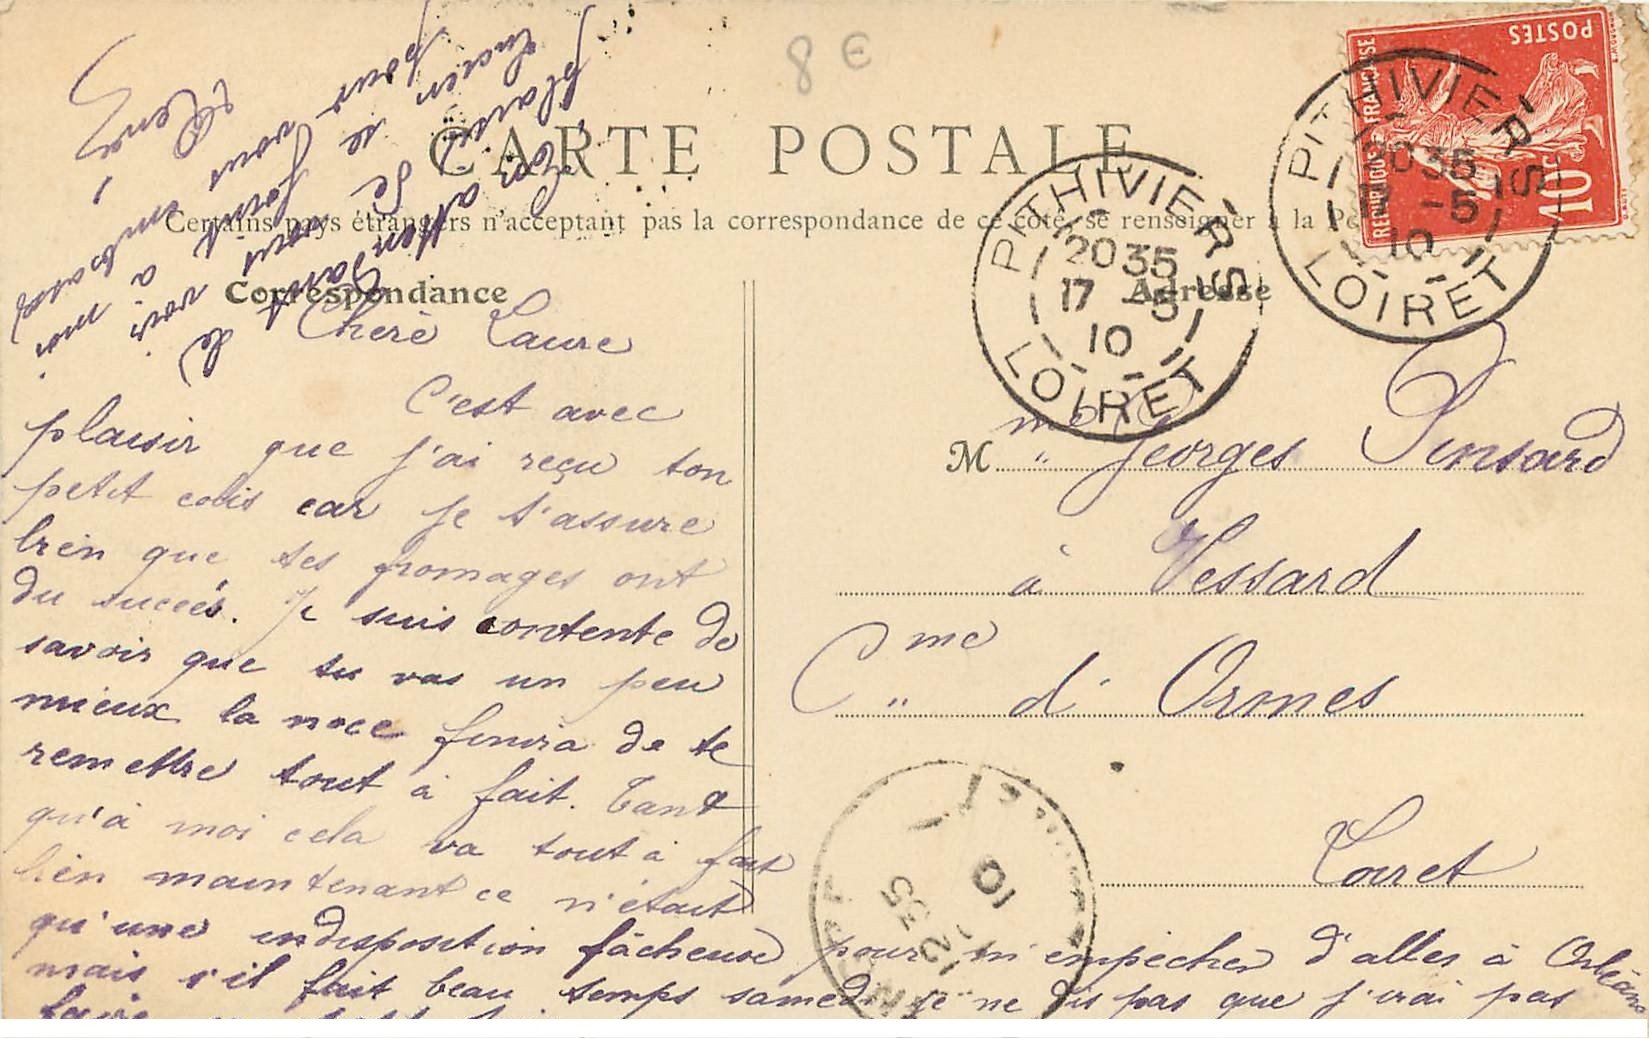 8 E
CARTE POSTALE
Certains pays étrangers n'acceptant pas la correspondance de ce côté, se renseigner à la
Correspondance
Adresse
POSTES
REPUBLIQUE FRANÇAISE
10c
PITHIVIERS
20 35
17 -5
10
LOIRET
PITHIVIERS
20 35
17 -5
10
LOIRET
Chère Laure
C'est avec
plaisir que j'ai reçu ton
petit colis car je t'assure
bien que tes fromages ont
du succés. Je suis contente de
savoir que tu vas un peu
mieux la noce finira de te
remettre tout à fait. Tant
qu'à moi cela va tout à fait
bien maintenant ce n'était
qu'une indisposition fâcheuse pour m'empêcher d'aller à Orléans
mais s'il fait beau temps samedi je ne dis pas que j'irai pas
faire
plaisir
En attendant de
Je vous
pour vous
René
Mme Georges Pinsard
à Vessard
Cme d'Ormes
Loiret
10
12 35